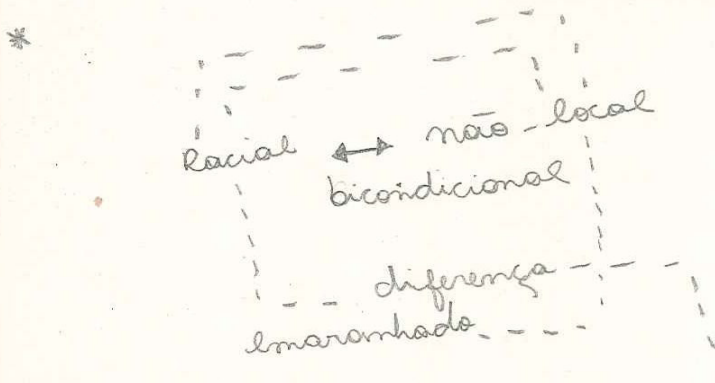 *
Racial ↔ não-local
bicondicional
diferença
emaranhado